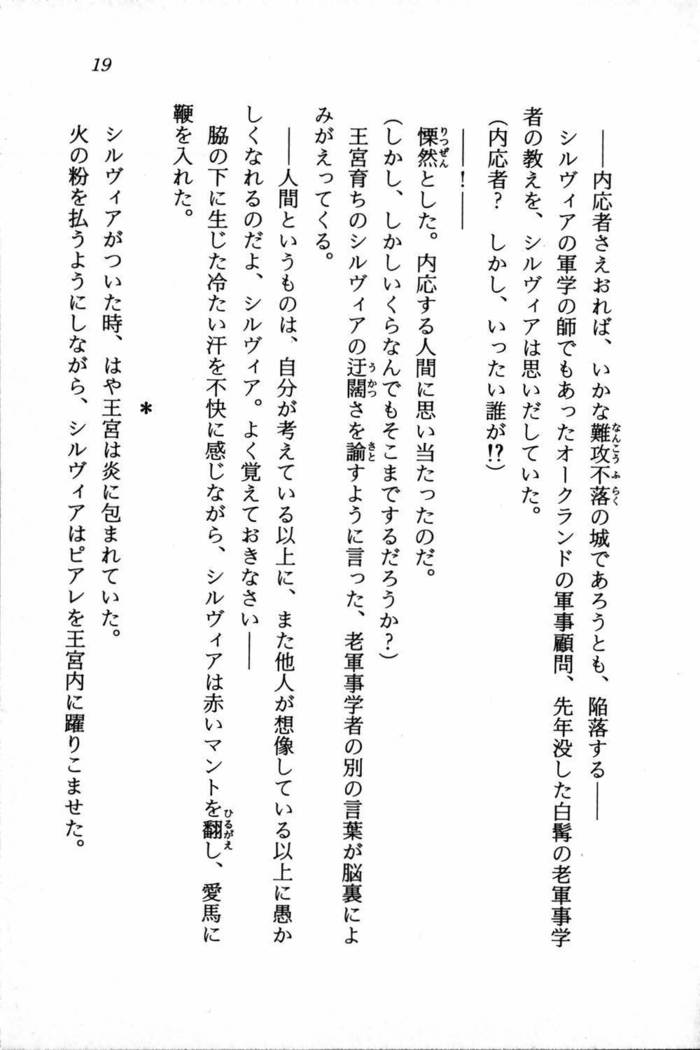 19
――内応者さえおれば、いかな難攻不落の城であろうとも、陥落する――
シルヴィアの軍学の師でもあったオークランドの軍事顧問、先年没した白髯の老軍事学
者の教えを、シルヴィアは思いだしていた。
(内応者? しかし、いったい誰が!?)
――!――
慄然とした。内応する人間に思い当たったのだ。
(しかし、しかしいくらなんでもそこまでするだろうか?)
王宮育ちのシルヴィアの迂闊さを諭すように言った、老軍事学者の別の言葉が脳裏によ
みがえってくる。
――人間というものは、自分が考えている以上に、また他人が想像している以上に愚か
しくなれるのだよ、シルヴィア。よく覚えておきなさい――
脇の下に生じた冷たい汗を不快に感じながら、シルヴィアは赤いマントを翻し、愛馬に
鞭を入れた。
*
シルヴィアがついた時、はや王宮は炎に包まれていた。
火の粉を払うようにしながら、シルヴィアはピアレを王宮内に躍りこませた。